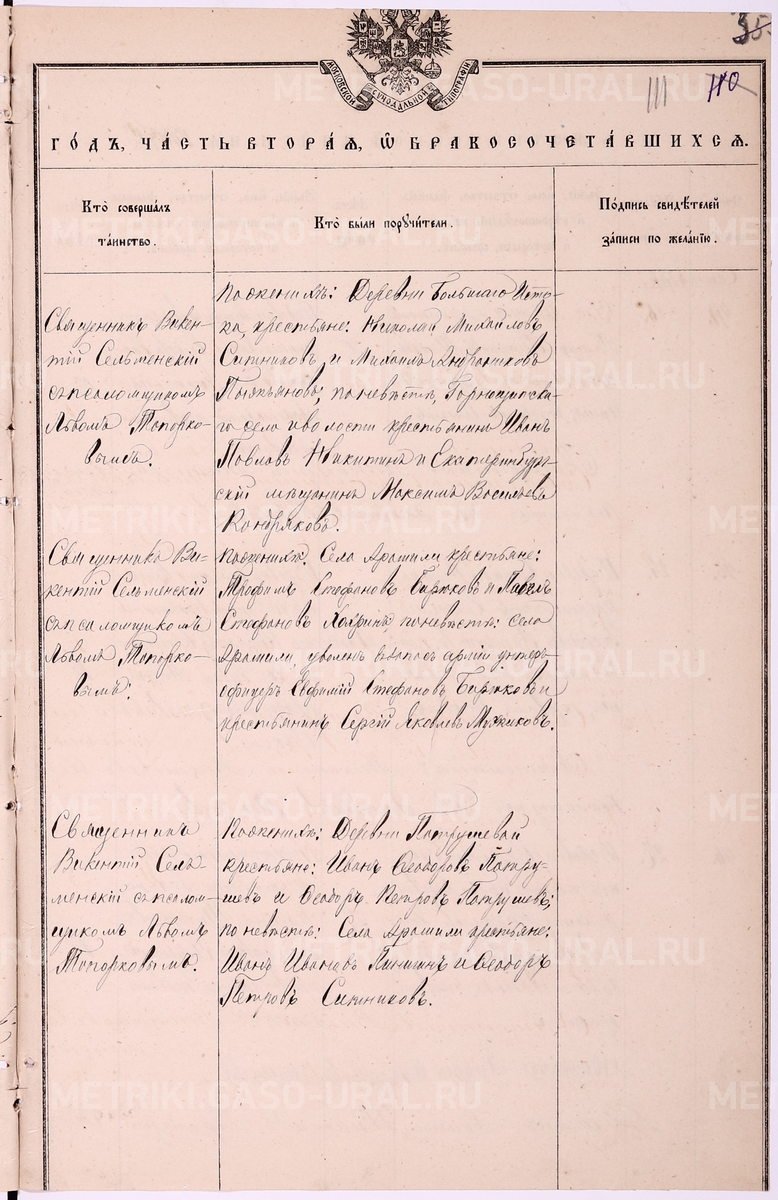 35
111 110
МОСКОВСКОЙ СѴНОДАЛЬНОЙ ТИПОГРАФІИ
ГО́ДЪ, ЧА́СТЬ ВТОРА́Я, Ѽ БРАКОСОЧЕТА́ВШИХСЯ.
Кто̀ соверша́лъ
та́инство.
Кто̀ бы́ли порꙋчи́тели.
По́дпись свидѣ́телей
за́писи по жела́нїю.
Священникъ Викен-
тій Сельменскій
съ псаломщикомъ
Львомъ Топорко-
вымъ.
По женихѣ: Деревни Большаго Исто-
ка, крестьяне: Николай Михайловъ
Ситниковъ и Михаилъ Андрониковъ
по невѣстѣ, Горнощитска-
го села и волости крестьянинъ Иванъ
Павловъ Никитинъ и Екатеринбург-
скій мѣщанинъ Максимъ Васильевъ
Кондряковъ.
Священникъ Ви-
кентій Сельменскій
съ псаломщикомъ
Львомъ Топорко-
вымъ.
По женихѣ: Села Арамили крестьяне:
Трофимъ Стефановъ Бирюковъ и Павелъ
Стефановъ по невѣстѣ: села
Арамили, уволен. въ запасъ арміи унтеръ-
офицеръ Евфимій Стефановъ Бирюковъ и
крестьянинъ Сергій Яковлевъ Мужиковъ.
Священникъ
Викентій Сель-
менскій съ псалом-
щикомъ Львомъ
Топорковымъ.
По женихѣ: Деревни Патрушевой
крестьяне: Иванъ Ѳеодоровъ Патру-
шевъ и Ѳеодоръ Петровъ Патрушевъ;
по невѣстѣ: Села Арамили крестьяне:
Иванъ Ивановъ и Ѳеодоръ
Петровъ Ситниковъ.
METRIKI.GASO-URAL.RU